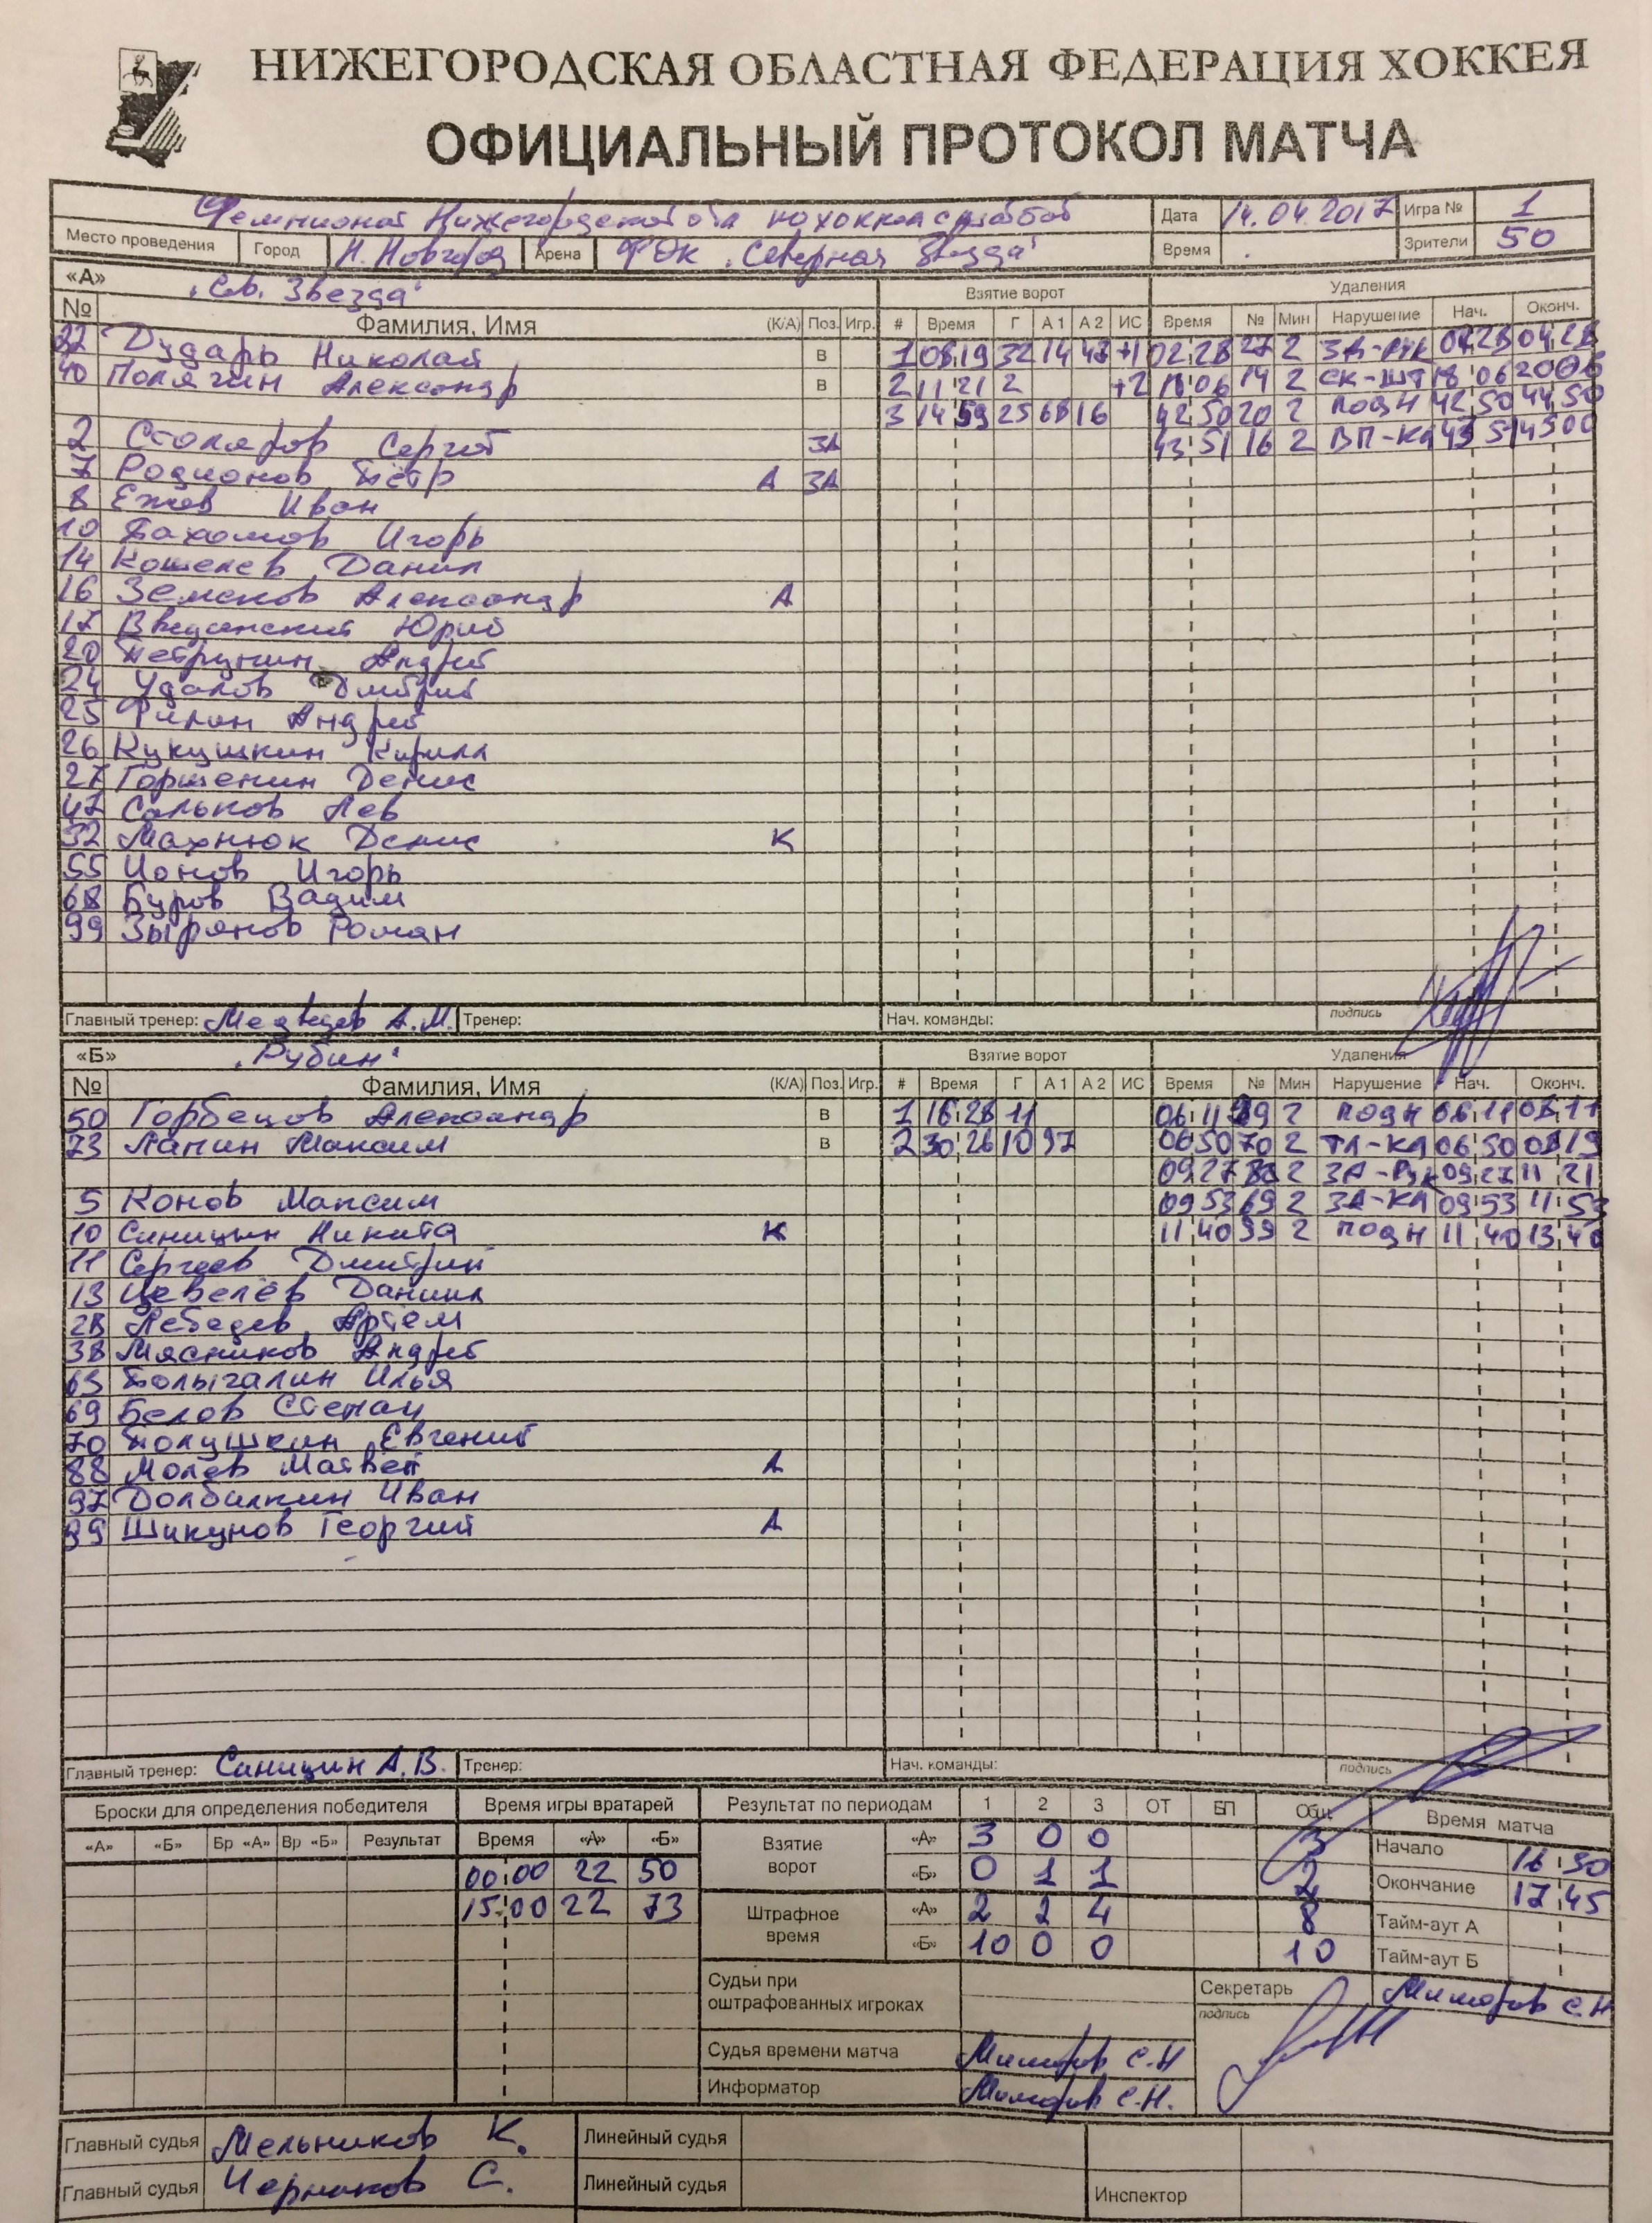 НИЖЕГОРОДСКАЯ ОБЛАСТНАЯ ФЕДЕРАЦИЯ ХОККЕЯ
ОФИЦИАЛЬНЫЙ ПРОТОКОЛ МАТЧА
Чемпионат Нижегородской обл по хоккею Дата 14.04.2017 Игра № 1
Место проведения Город Н. Новгород Арена ФОК "Северная Звезда" Время Зрители 50
«А» "Св. Звезда" Взятие ворот Удаления
№ Фамилия, Имя (К/А) Поз. Игр. # Время Г А 1 А 2 ИС Время № Мин Нарушение Нач. Оконч.
22 Дударь Николай В 1 08 19 32 14 47 +1 02 28 27 2 ЗД-РУК 02 28 04 28
40 Полягин Александр В 2 11 21 2 +2 18 06 14 2 СК-ШТ 18 06 20 06
3 14 59 25 68 16 42 50 20 2 ПОДН 42 50 44 50
2 Столяров Сергей ЗА 43 51 16 2 ВП-КЛ 43 51 45 00
7 Родионов Пётр А ЗА
8 Ежов Иван
10 Пахомов Игорь
14 Кошелев Данил
16 Земсков Александр А
17 Введенский Юрий
20 Петрунин Андрей
24 Удалов Дмитрий
25 Филин Андрей
26 Кукушкин Кирилл
27 Горшенин Денис
47 Сальков Лев
32 Махнюк Денис К
55 Ионов Игорь
68 Буров Вадим
99 Зырянов Роман
Главный тренер: Медведев А.М. Тренер: Нач. команды: подпись
«Б» "Рубин" Взятие ворот Удаления
№ Фамилия, Имя (К/А) Поз. Игр. # Время Г А 1 А 2 ИС Время № Мин Нарушение Нач. Оконч.
50 Горбецов Александр В 1 16 28 11 06 11 2 ПОДН 06 11 08 11
73 Лапин Максим В 2 30 26 10 97 06 50 70 2 ТЛ-КЛ 06 50 08 19
09 27 88 2 ЗА-РУК 09 27 11 21
5 Конов Максим 09 53 69 2 ЗА-КЛ 09 53 11 53
10 Синицын Никита К 11 40 99 2 ПОДН 11 40 13 40
11 Сергеев Дмитрий
13 Цевелёв Даниил
28 Лебедев Артём
38 Мясников Андрей
63 Полыгалин Илья
69 Белов Степан
70 Полушкин Евгений
88 Молев Матвей А
97 Долбилкин Иван
99 Шикунов Георгий А
Главный тренер: Синицин А.В. Тренер: Нач. команды: подпись
Броски для определения победителя Время игры вратарей Результат по периодам 1 2 3 ОТ БП Общ. Время матча
«А» «Б» Вр «А» Вр «Б» Результат Время «А» «Б» Взятие ворот «А» 3 0 0 3 Начало 16 30
00 00 22 50 «Б» 0 1 1 2 Окончание 17 45
15 00 22 73 Штрафное время «А» 2 2 4 8 Тайм-аут А
«Б» 10 0 0 10 Тайм-аут Б
Судьи при оштрафованных игроках Секретарь С.Н
подпись
Судья времени матча С.Н
Информатор С.Н.
Главный судья Мельников К. Линейный судья
Главный судья Черников С. Линейный судья Инспектор